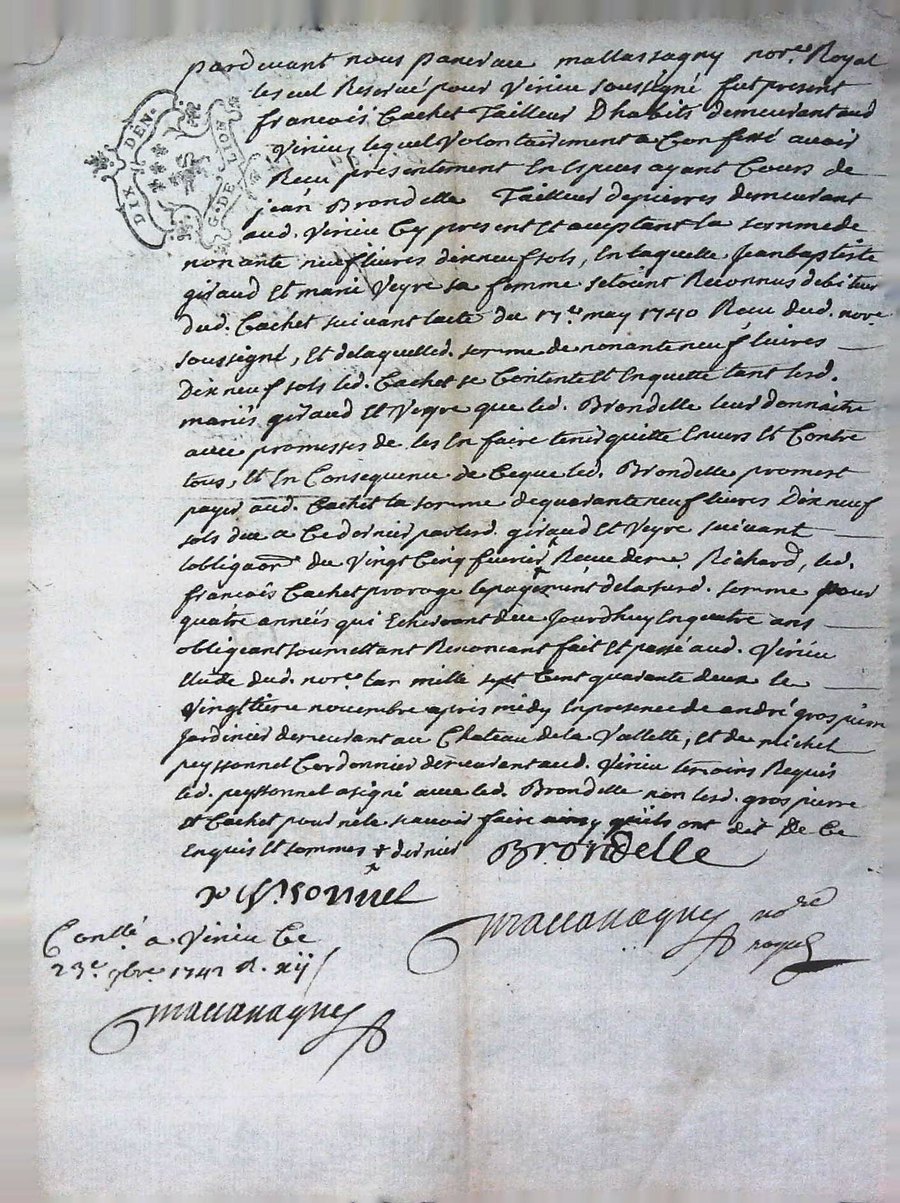 DIX DEN.
G. DE LION
pardevant nous pancrace mallassagny nore. Royal
le seul Reservé pour Virieu soussigné fut present
francois Cachet Tailleur Dhabits demeurant aud
Virieu lequel Volontairement a Confessé avoir
Receu presentement En Especes ayant Cours de
jean Brondelle Tailleur depierres demeurant
aud. Virieu Cy present Et aceptant la somme de
nonante neuf livres dixneuf sols, En laquelle Jeanbaptiste
giraud Et marie Veyre sa femme setoient Reconnus debiteur
dud. Cachet suivant lacte du 17e. may 1740 Receu dud. nore.
soussigné, Et delaquelle d. somme de nonante neuf livres
Dix neuf sols led. Cachet se Contente Et En quitte tant lesd.
mariés giraud Et Veyre que led. Brondelle leur donnaire
avec promesses de les En faire tenir quitte Envers Et Contre
tous, Et En Consequence de Ceque led. Brondelle promest
payer aud. Cachet la somme de quarante neuf livres Dix neuf
sols due a Ce dernier par lesd. giraud Et Veyre suivant
lobligaon du Vingt Cinq fuvrier Receue de me. Richard, led.
francois Cachet proroge lepayement delasusd. somme pour
quatre années qui Echeront du Jourdhuy En quatre ans
obligeant soumettant Renonceant fait Et passé aud. Virieu
Etude dud. nore. lan mille sept Cent quarante deux le
Vingttieme novembre apres midy En presence de andré gros pierre
Jardinier demeurant au Chateau de la Vallette, Et de michel
peyssonnel Cordonnier demeurant aud. Virieu temoins Requis
led. peyssonnel a signé avec led. Brondelle non lesd. gros pierre
Et Cachet pour ne le scavoir faire ainsy quils ont dit De Ce
Enquis Et sommes + dernier Brondelle
peyssonnel
mallassagny nore
royal
Conllé a Virieu Ce
23e. 9bre. 1742 R. xij s
mallassagny